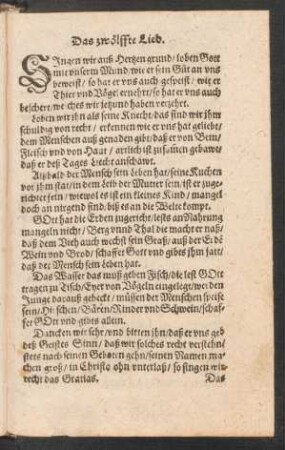 Das zwölffte Lied.
SIngen wir auß Hertzen grund / loben Gott
mit vnserm Mund / wie er sein Güt an vns
beweist / so hat er vns auch gespeist / wie er
Thier vnd Vögel ernehrt / so hat er vns auch
beschert / welches wir jetzund haben verzehrt.
Loben wir jhn als seine Knecht / das sind wir jhm
schuldig von recht / erkennen wie er vns hat geliebt /
dem Menschen auß genaden gibt / daß er von Bein /
Fleisch vnd von Haut / artlich ist zusam̃en gebawt /
daß er deß Tages Liecht anschawt.
Alßbald der Mensch sein Leben hat / seine Kuchen
vor jhm stat / in dem Leib der Mutter sein / ist er zuge-
richtet fein / wiewol es ist ein kleines Kind / mangel
doch an nirgend sind / biß es an die Welt kompt.
GOtt hat die Erden zugericht / lests an Nahrung
mangeln nicht / Berg vnnd Thal die macht er naß /
daß dem Vieh auch wechst sein Graß / auß der Erdē
Wein vnd Brod / schaffet Gott vnd gibts jhm satt /
daß der Mensch sein Leben hat.
Das Wasser das muß geben Fisch / die lest GOtt
tragen zu Tisch / Eyer von Vögeln eingelegt / werden
Junge darauß geheckt / müssen der Menschen speise
sein / Hirschen / Bären / Rinder vnd Schwein / schaf-
fet GOtt vnd gibts allein.
Dancken wir sehr / vnd bitten jhn / daß er vns geb
deß Geistes Sinn / daß wir solches recht verstehn /
stets nach seinen Geboten gehn / seinen Namen ma-
chen groß / in Christo ohn vnterlaß / so singen wir
recht das Gratias.
Das